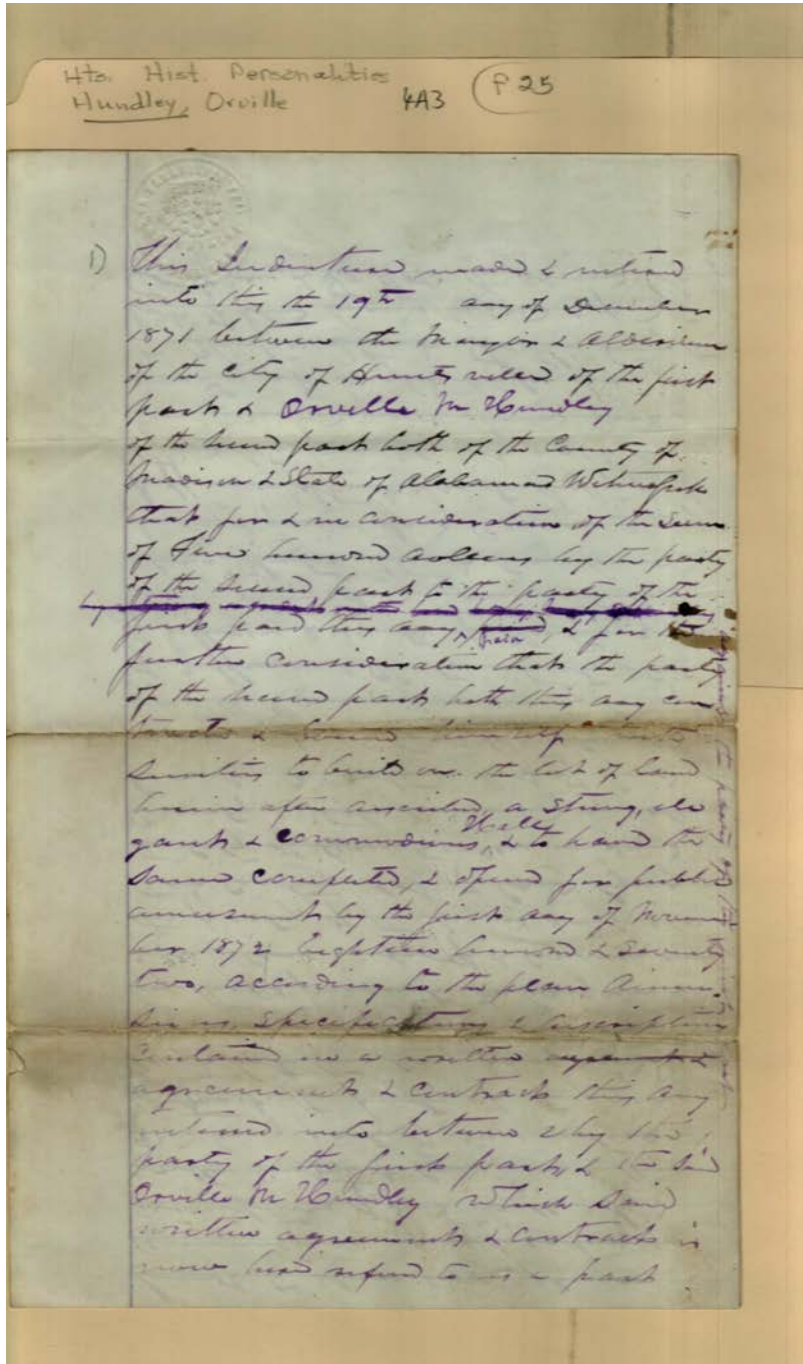 Hts. Hist. Personalities
Hundley, Orville 4A3 P 25
1) This Indenture made & entered
into this the 19th day of December
1871 between the Mayor & Aldermen
of the City of Huntsville of the first
part & Orville M Hundley
of the second part both of the County of
Madison & State of Alabama Witnesseth
that for & in consideration of the Sum
of Five hundred dollars by the party
of the second part to the party of the
first part this day paid, & for the
further consideration that the party
of the second part hath this day con
tracted & bound himself with
Sureties to build on the lot of land
herein after described, a strong, ele
gant & commodious Hall, & to have the
same completed, & opened for public
amusement by the first day of Novem
ber 1872 Eighteen hundred & Seventy
two, according to the plan dimen
sions, specifications & description
contained in a written agreement &
agreement & contract this day
entered into between & by the
party of the first part, & the Sd
Orville M Hundley which Said
written agreement & contract is
now here referred to as a part